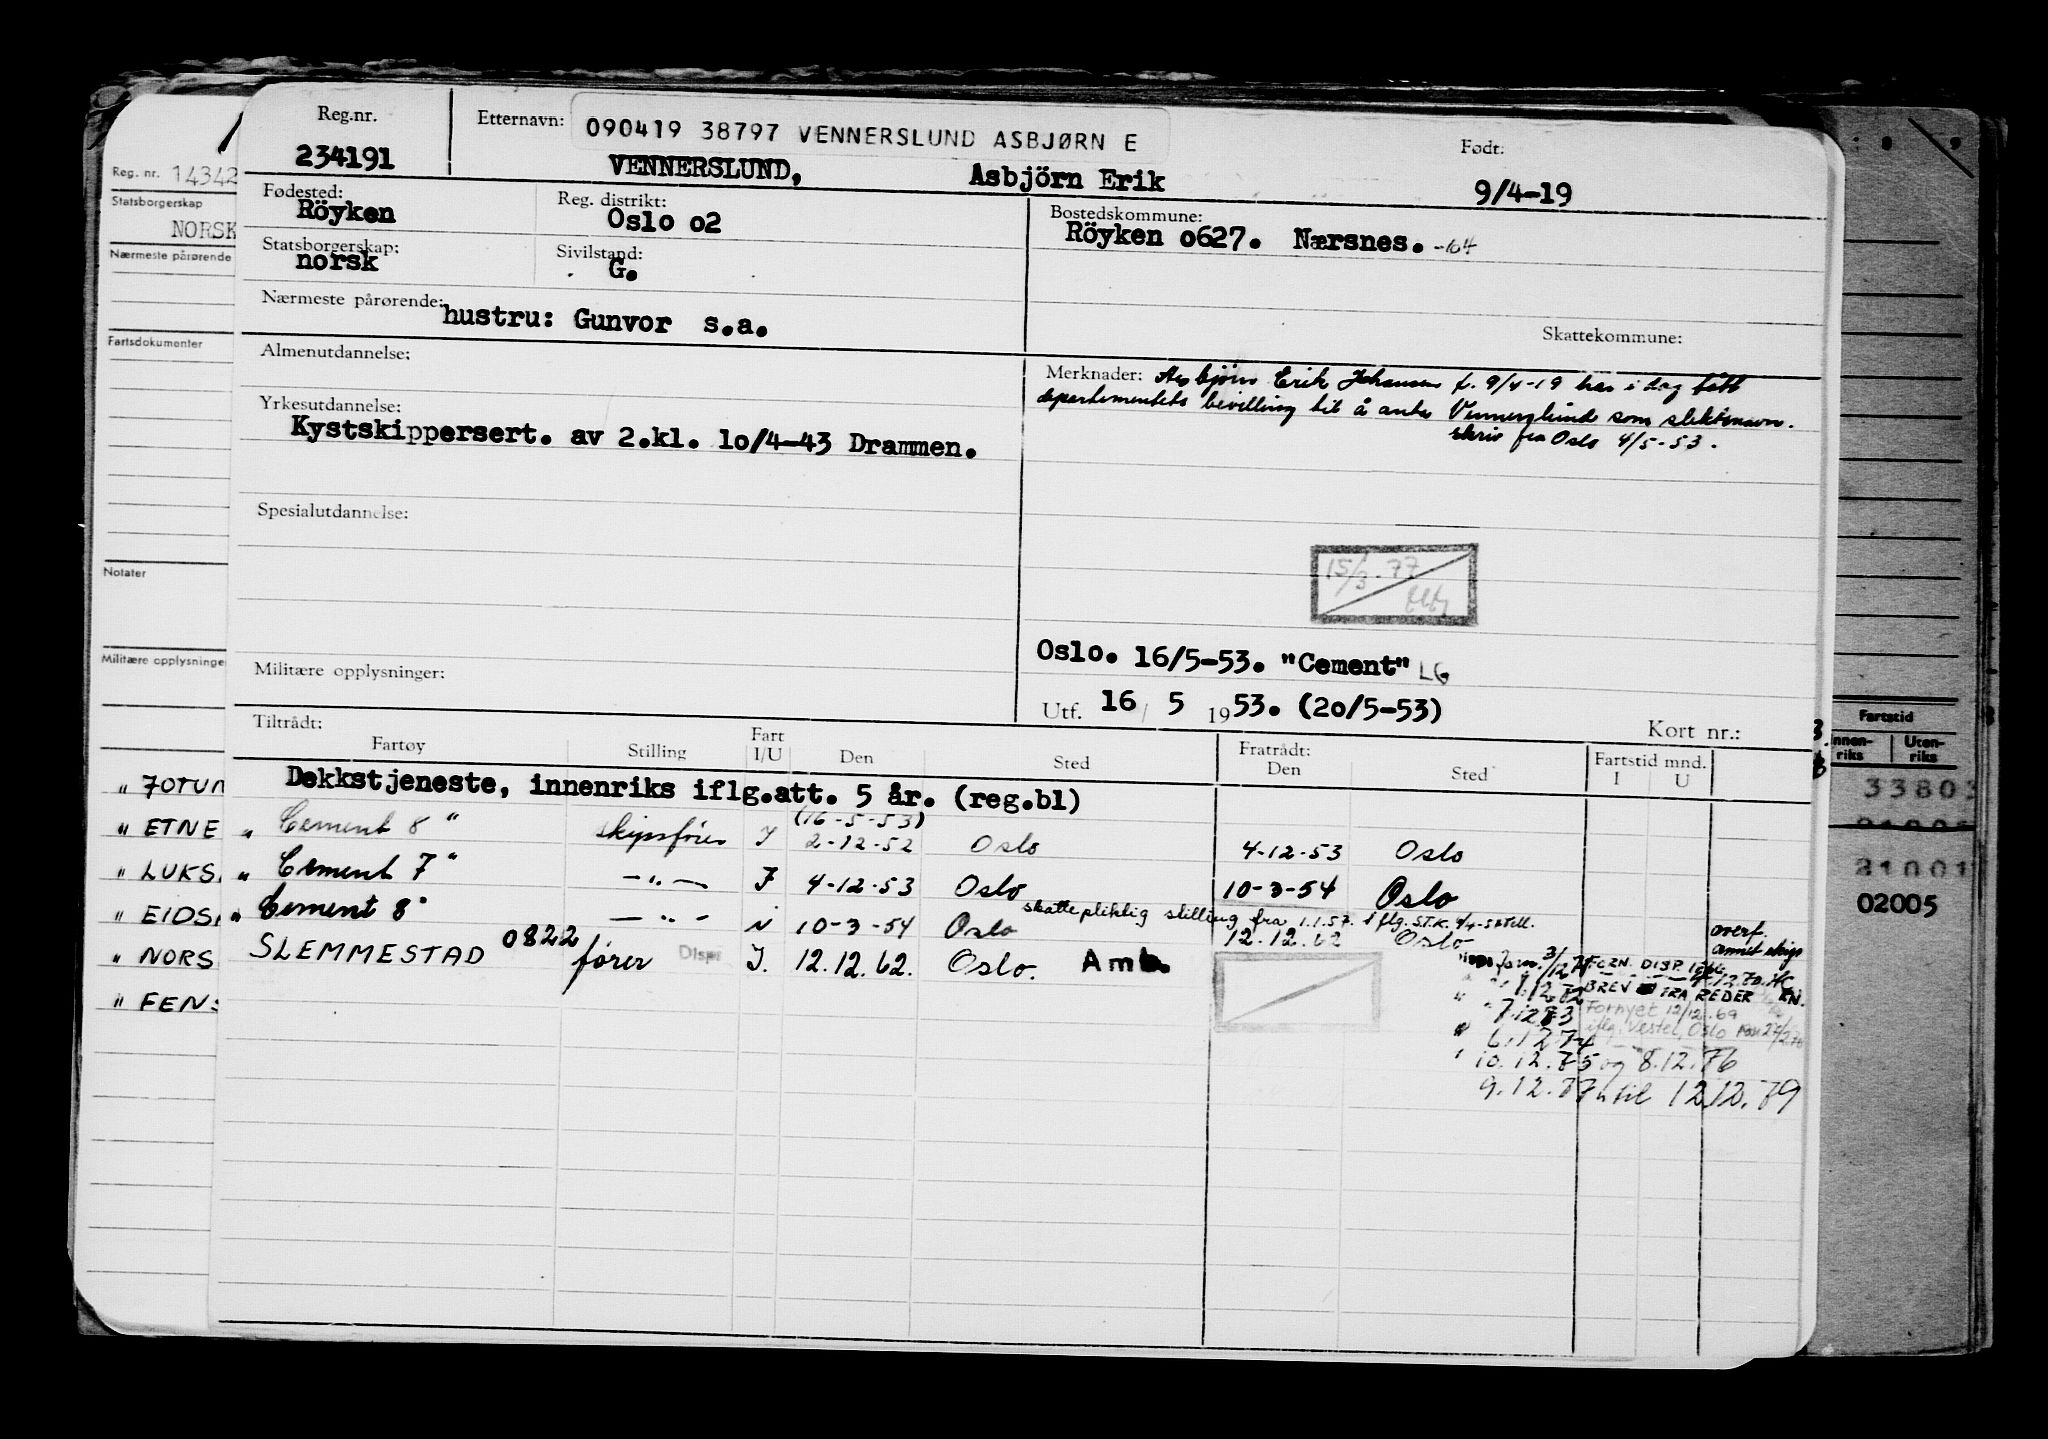 Reg.nr.
234191
Etternavn:
090419 38797 VENNERSLUND ASBJØRN E
VENNERSLUND, Asbjörn Erik
Født:
9/4-19
Fødested:
Röyken
Reg. distrikt:
Oslo o2
Bostedskommune:
Röyken o627. Nærsnes. -64
Statsborgerskap:
norsk
Sivilstand:
G.
Nærmeste pårørende:
hustru: Gunvor s.a.
Skattekommune:
Almenutdannelse:
Merknader: Asbjörn Erik Johansen f. 9/4-19 har i dag fått
departementets bevilling til å anta Vennerslund som slektsnavn.
skriv fra Oslo 4/5-53.
Yrkesutdannelse:
Kystskippersert. av 2.kl. 1o/4-43 Drammen.
Spesialutdannelse:
15/3.77
Militære opplysninger:
Oslo. 16/5-53. "Cement" LG
Utf. 16 / 5 1953. (2o/5-53)
Kort nr.:
Tiltrådt:
Fartøy
Stilling
Fart I/U
Den
Sted
Fratrådt:
Den
Sted
Fartstid mnd.
I U
Dekkstjeneste, innenriks iflg.att. 5 år. (reg.bl)
(16-5-53)
„ Cement 8 " skipsfører I 2-12-52 Oslo 4-12-53 Oslo
„ Cement 7 " -"- I 4-12-53 Oslo 10-3-54 Oslo
skattepliktig stilling fra 1.1.57. iflg. S.T.K. 9/4-58
„ Cement 8 " -"- i 10-3-54 Oslo 12.12.62 Oslo
overf.
annet skip
SLEMMESTAD 0822 fører Disp I. 12.12.62. Oslo. Amb.
BREV FRA REDER
Fornyet 12/12.69
iflg. Vestel, Oslo
" 7.12.73
" 6.12.74
" 10.12.75 og 8.12.76
9.12.77 til 12/12.79
Reg. nr. 14342
Statsborgerskap
NORSK
Nærmeste pårørende
Fartsdokumenter
Notater
Militære opplysninge
" JOTUN
" ETNE
" LUKS
" EIDS
" NORS
" FENS
Fartstid
Innen-
riks
Uten-
riks
33803
21001
02005